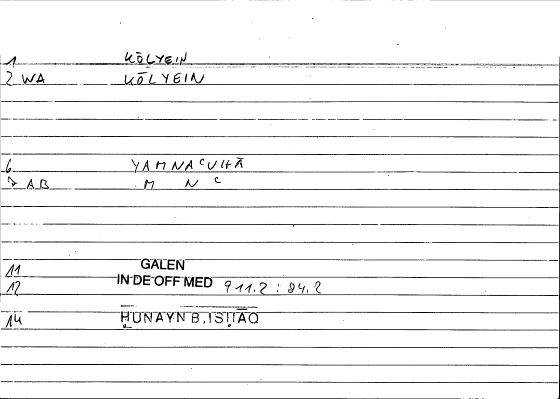 1 KŌLYEIN
2 WA KŌLYEIN
6 YAMNAᶜUHĀ
7 AB M N ᶜ
11 GALEN
12 IN DE OFF MED 911.2 : 84.2
14 ḤUNAYN B. ISḤĀQ